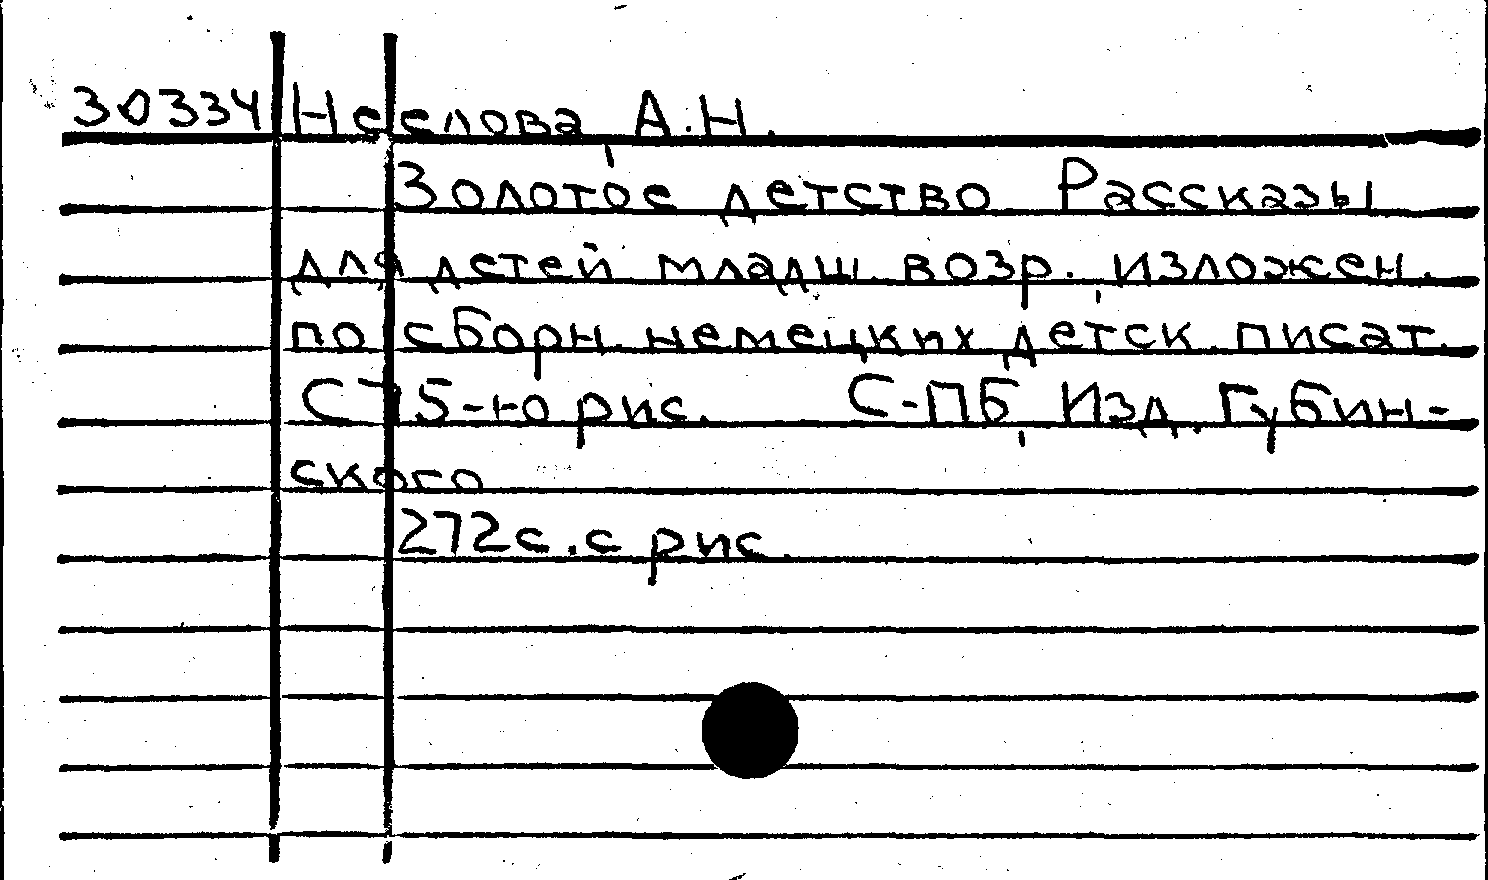 30334 Неелова, А.Н.
Золотое детство. Рассказы
для детей младш. возр., изложен.
по сборн. немецких детск. писат.
С 75-ю рис. С-ПБ, Изд. Губин-
ского
272с. с рис.